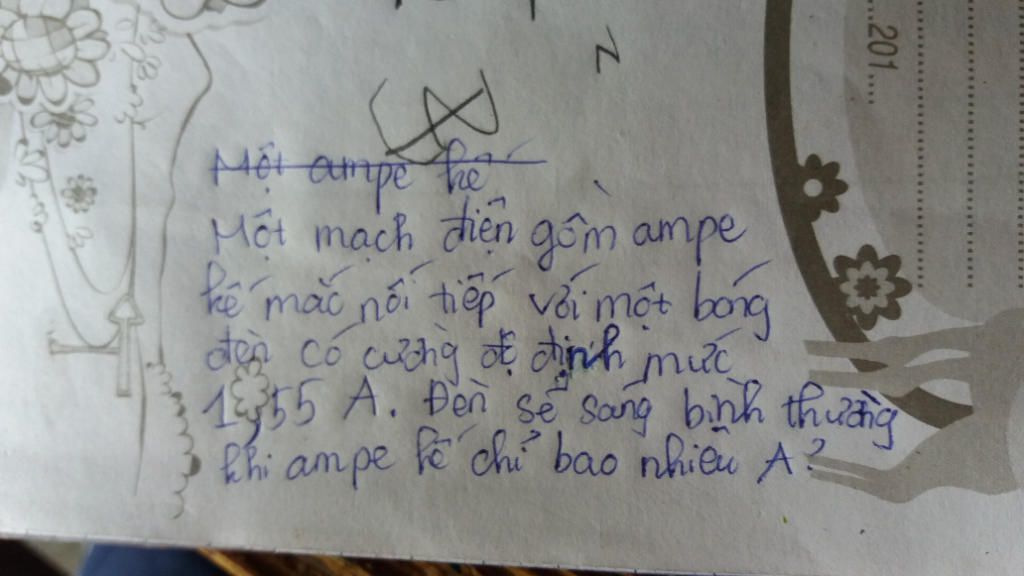 201....
N
Một ampe kế
Một mạch điện gồm ampe
kế mắc nối tiếp với một bóng
đèn có cường độ định mức
1,55 A. Đèn sẽ sáng bình thường
khi ampe kế chỉ bao nhiêu A?